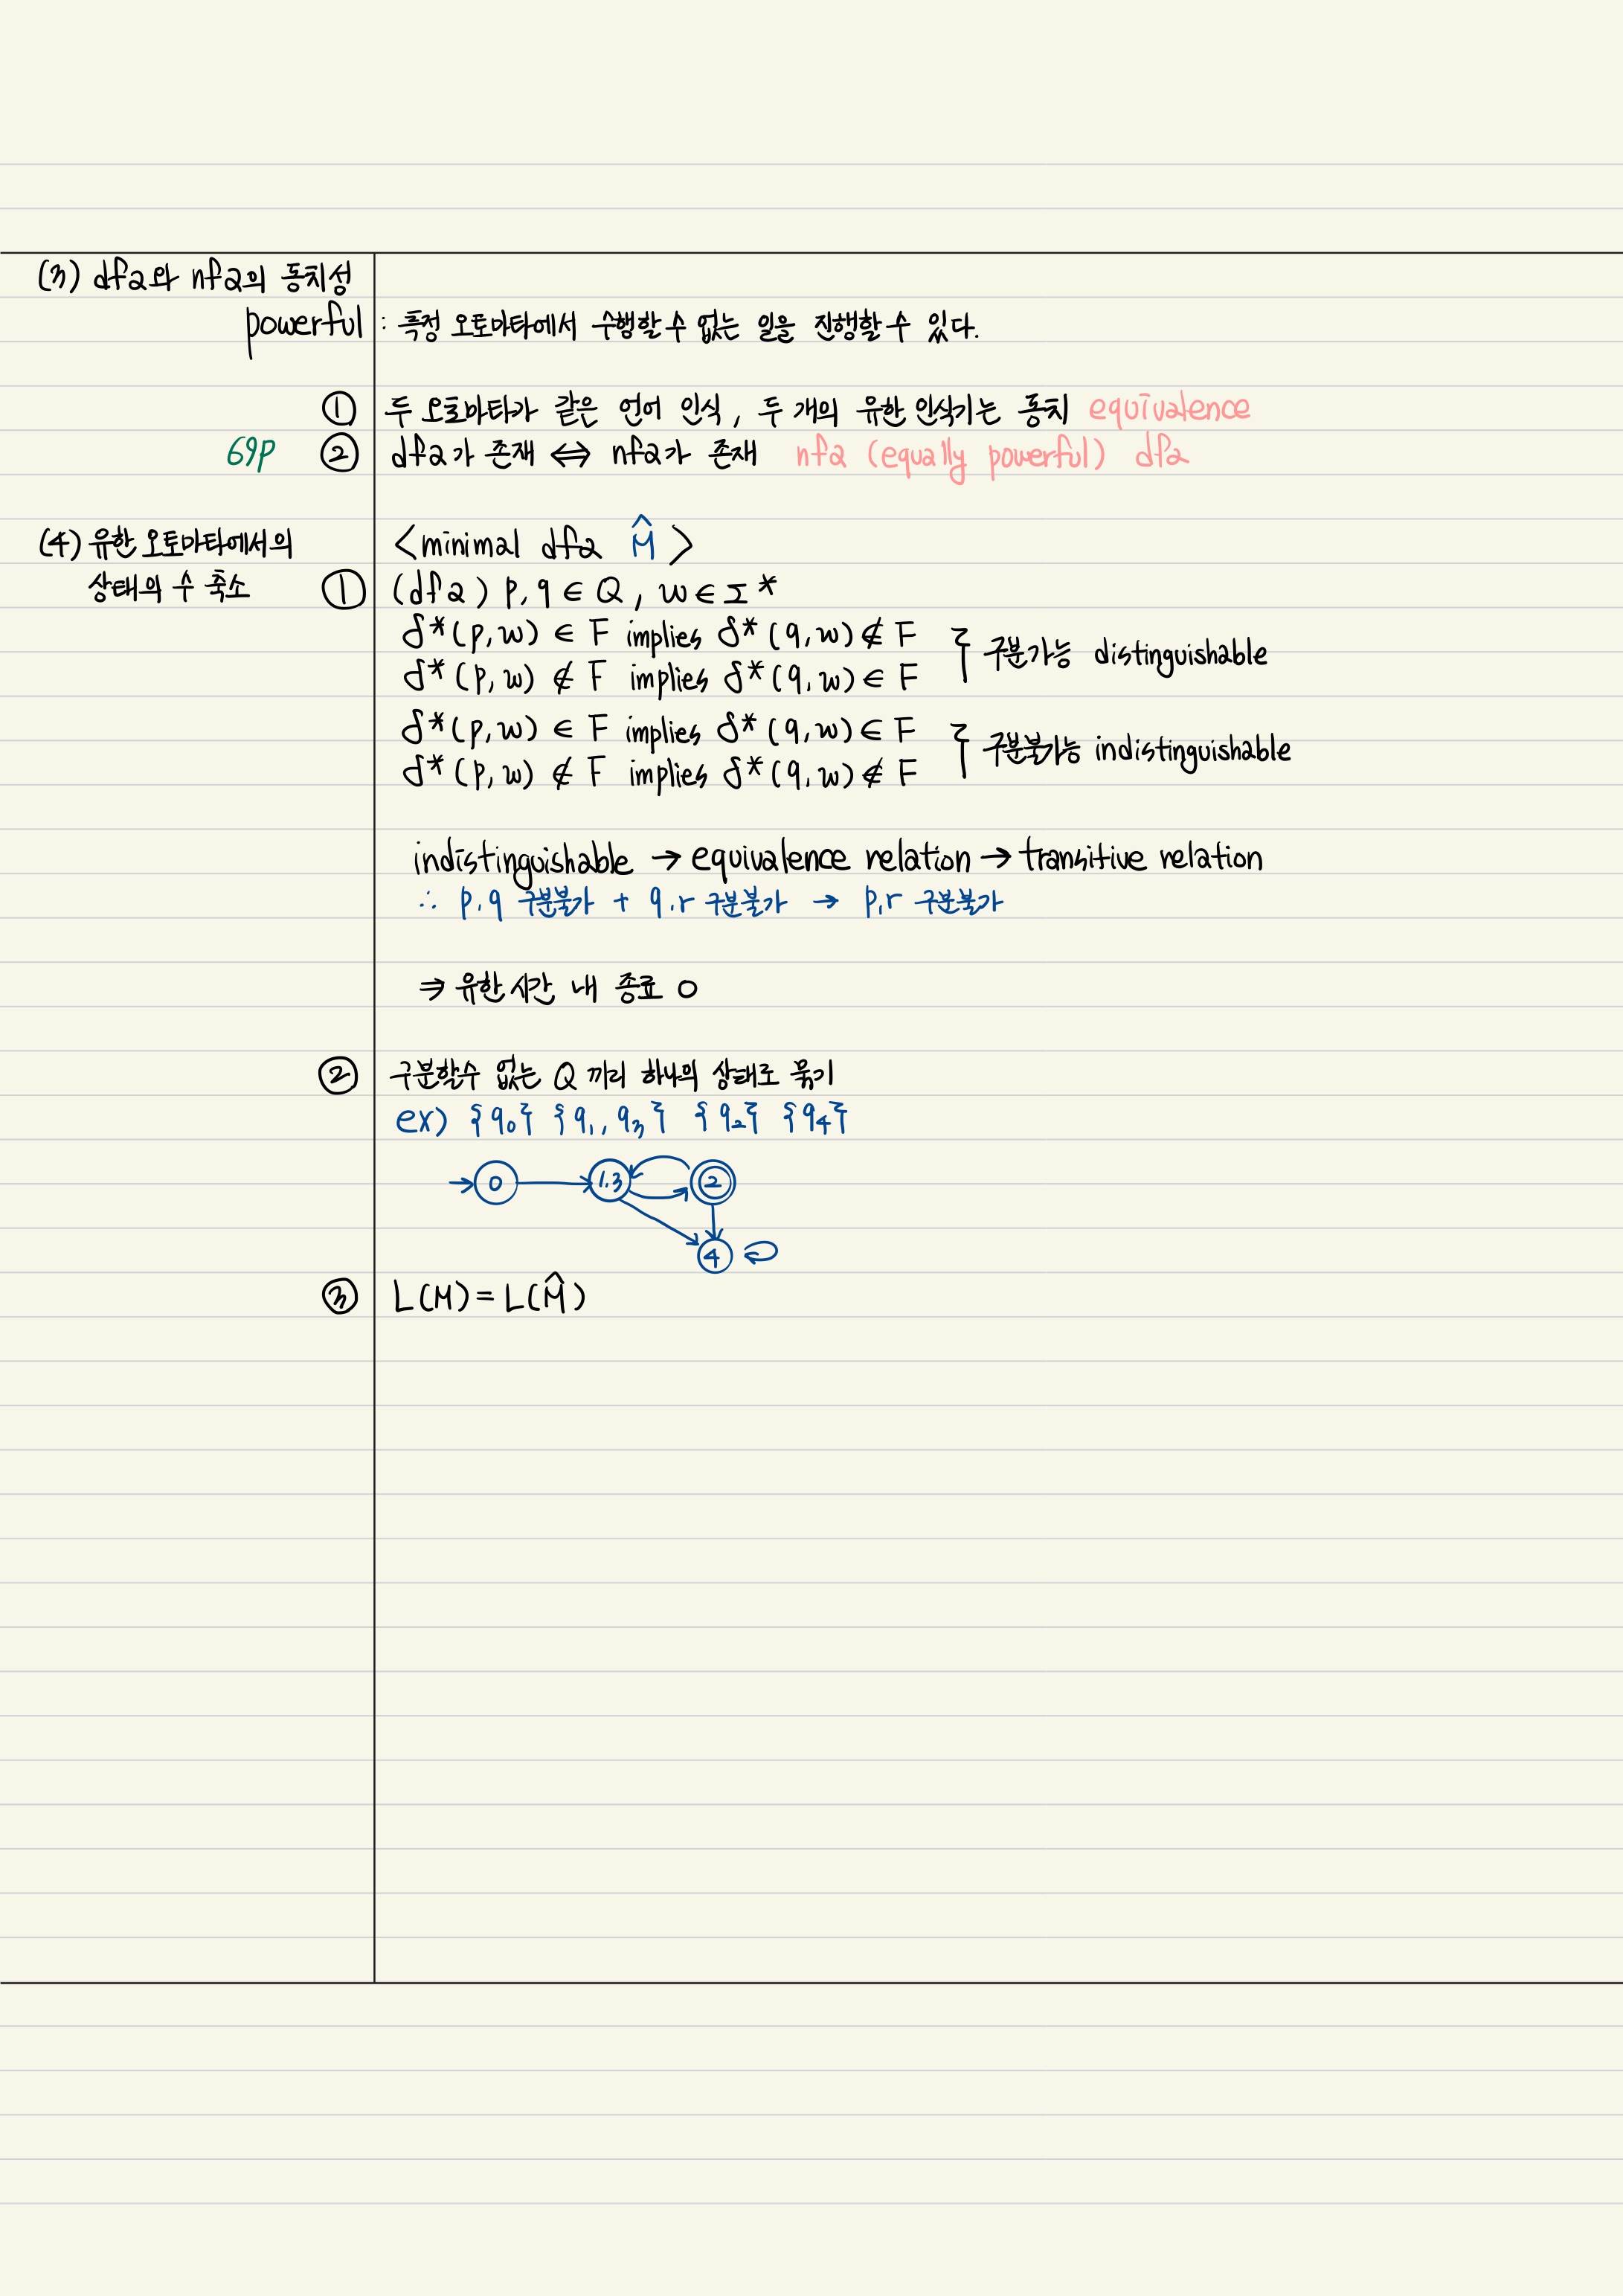 (3) dfa와 nfa의 동치성
powerful : 특정 오토마타에서 수행할 수 없는 일을 진행할 수 있다.
① 두 오토마타가 같은 언어 인식, 두 개의 유한 인식기는 동치 equivalence
69p ② dfa가 존재 ⟺ nfa가 존재 nfa (equally powerful) dfa
(4) 유한 오토마타에서의 <minimal dfa M̂ >
상태의 수 축소 ① (dfa) p, q ∈ Q, w ∈ Σ*
δ*(p, w) ∈ F implies δ*(q, w) ∉ F } 구분가능 distinguishable
δ*(p, w) ∉ F implies δ*(q, w) ∈ F
δ*(p, w) ∈ F implies δ*(q, w) ∈ F } 구분불가능 indistinguishable
δ*(p, w) ∉ F implies δ*(q, w) ∉ F
indistinguishable → equivalence relation → transitive relation
∴ p, q 구분불가 + q, r 구분불가 → p, r 구분불가
⇒ 유한 시간 내 종료 O
② 구분할수 없는 Q 끼리 하나의 상태로 묶기
ex) {q₀} {q₁, q₃} {q₂} {q₄}
0 1,3 2
4
③ L(M) = L(M̂)